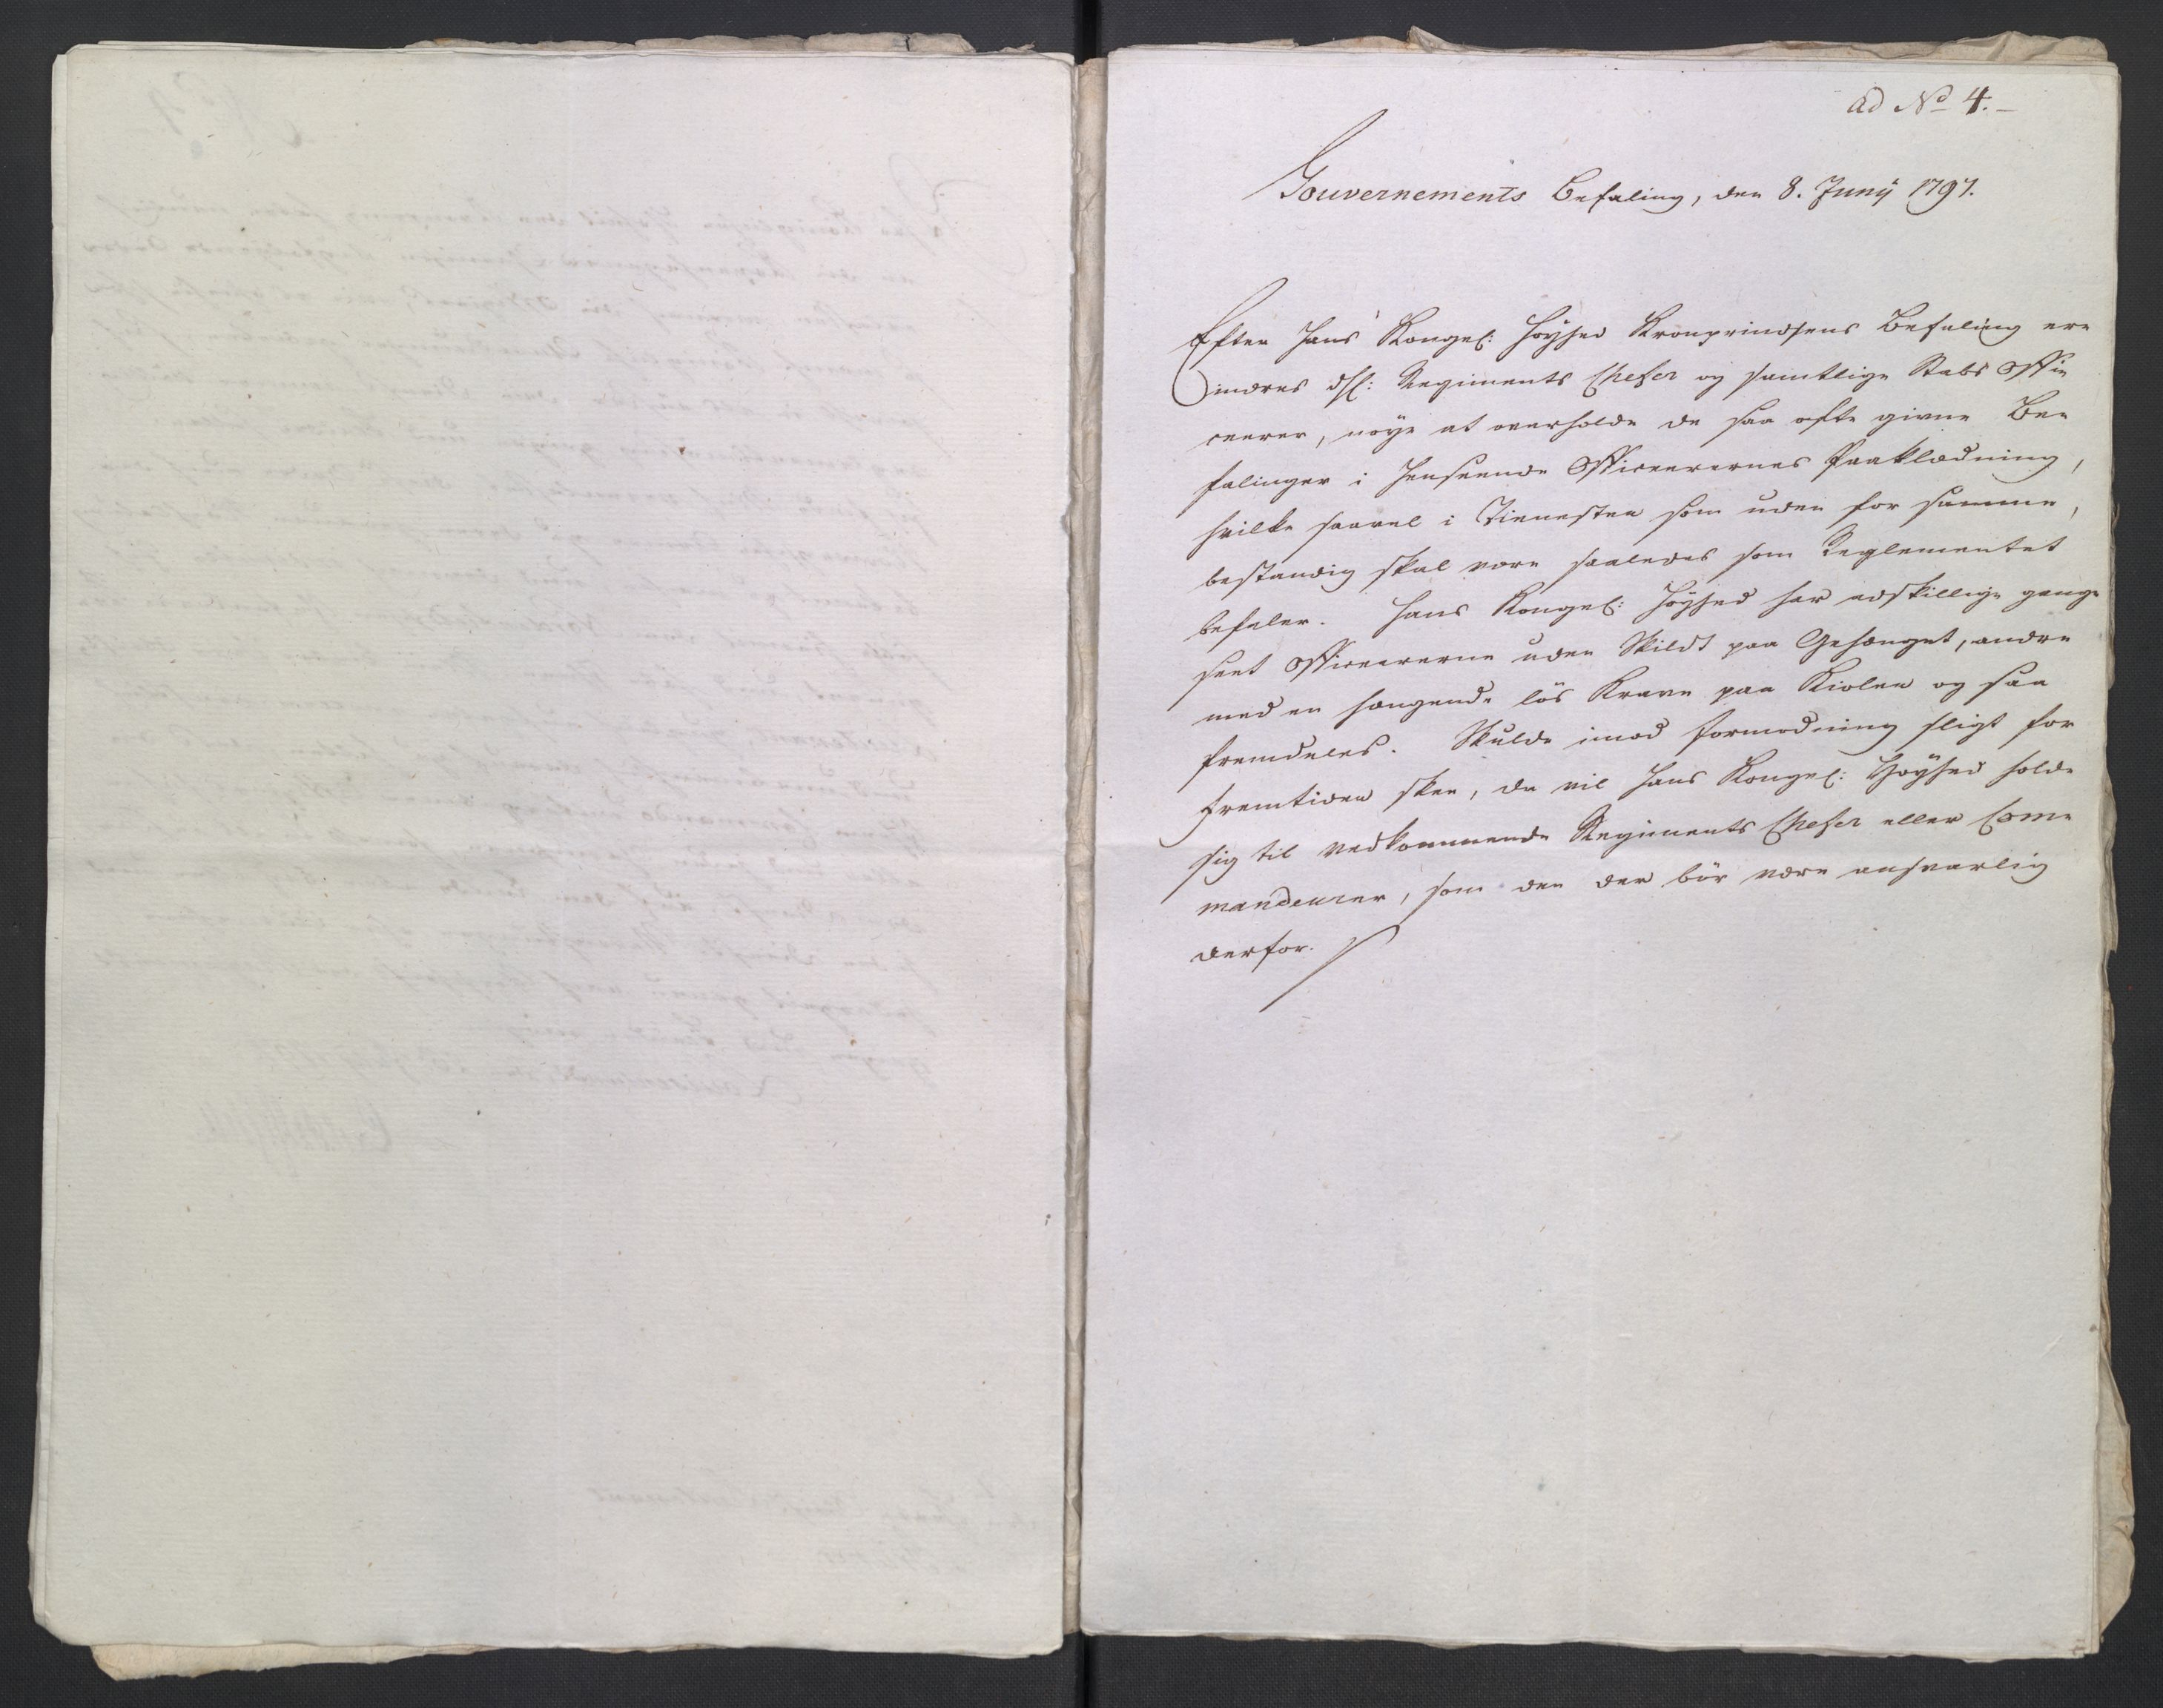 ad No 4.
Gouvernements Befaling, den 8. Junÿ 1797.
Efter Hans Kongel: Höyhed Kronprindsens Befaling er-
indres Regiments Chefer og samtlige Stabs Offi-
ceerer, nöye at overholde de saa ofte givne Be-
falinger i Henseende Officeerernes Paaklædning,
hvilke saavel i Tienesten som uden for samme,
bestandig skal være saaledes som Reglementet
befaler. Hans Kongel: Höyhed har adskillige gange
seet Officeererne uden Skildt paa Gehænget, andre
med en hængende lös Krave paa Kiolen og saa
fremdeles. Skulde imod Formodning sligt for
Fremtiden skee, da vil Hans Kongel: Höyhed holde
sig til vedkommende Regiments Chefer eller Com-
mandeurer, som den der bör være ansvarlig
derfor.